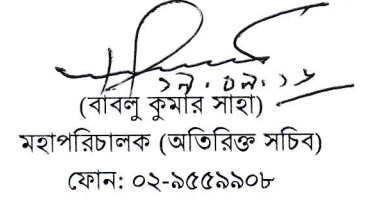 (বাবলু কুমার সাহা)
মহাপরিচালক (অতিরিক্ত সচিব)
ফোন: ০২-৯৫৫৯৯০৮